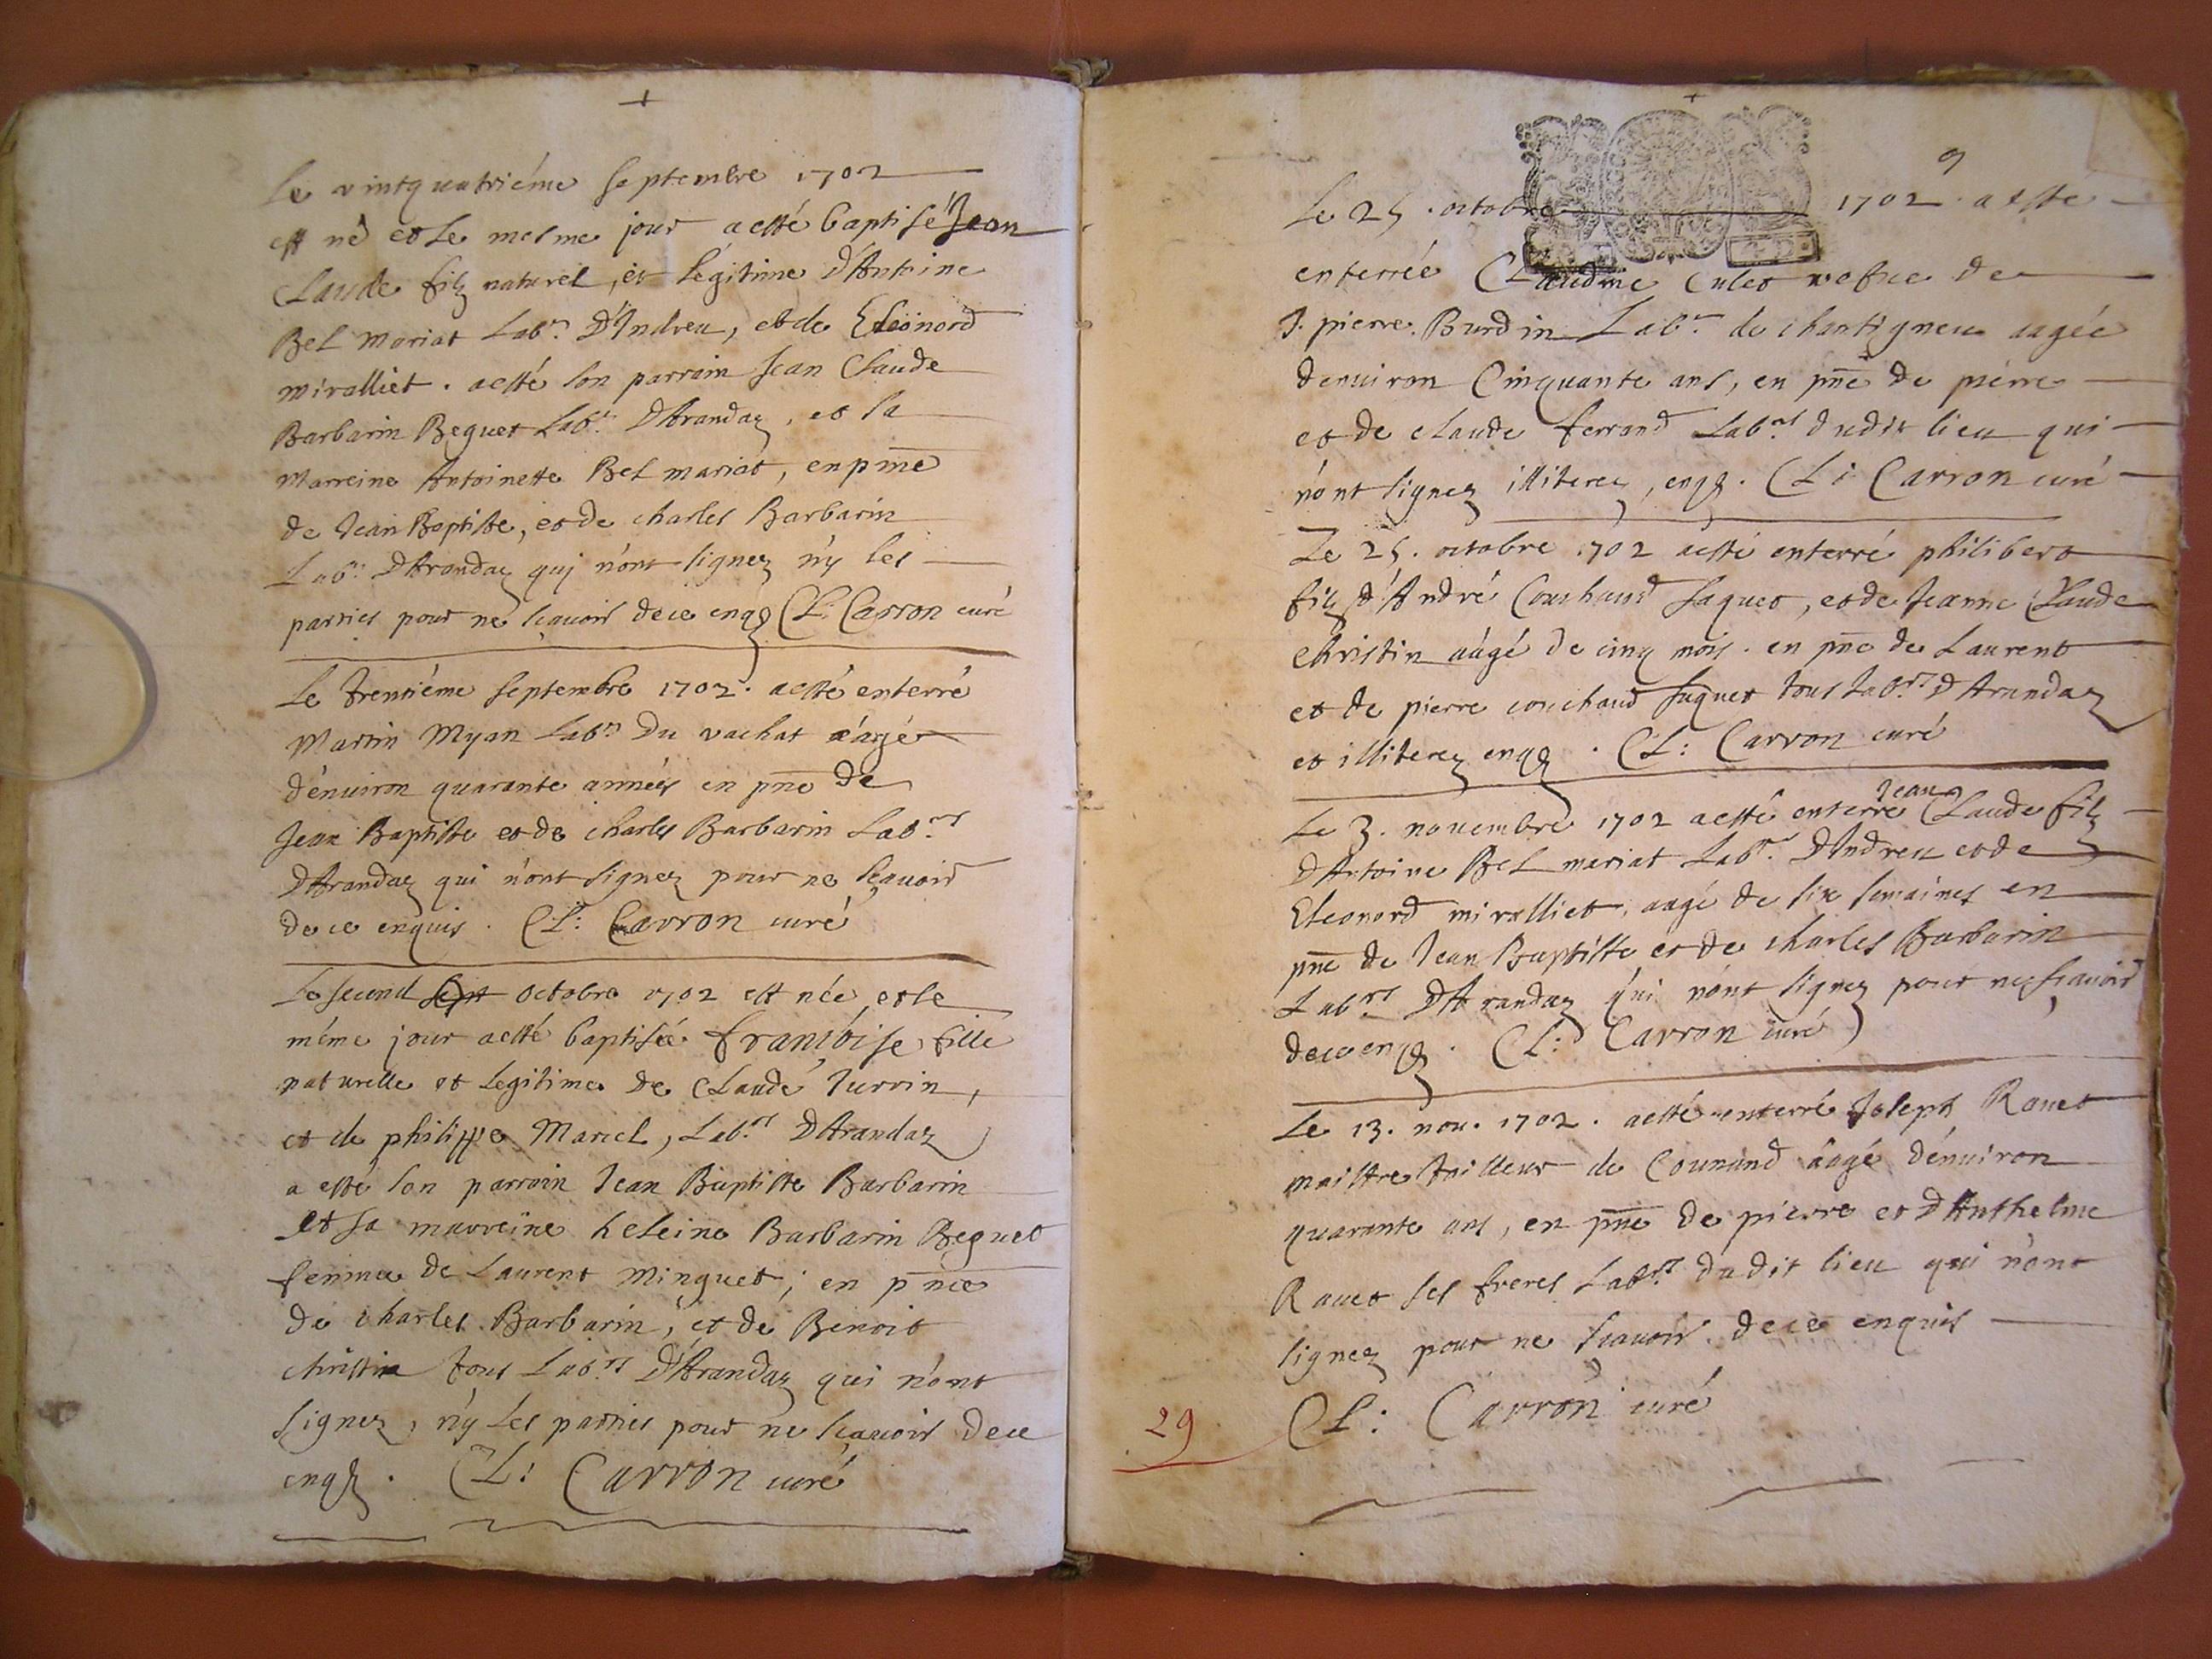 Le vintquatriéme septembre 1702
est né et le mesme jour a esté baptisé Jean
Claude filz naturel, et légitime d'Antoine
Bel mariat Labr. D'Indrea, et de Eleonord
miralliet. a esté son parrain Jean Claude
Barbarin Beguet Labr. D'Arandaz, et sa
Marreine Antoinette Bel mariat, en pnce
de Jean Baptiste, et de charles Barbarin
Labrs D'Arandaz qui n'ont signez n'y les
parties pour ne sçauoir de ce enqs Cl: Carron curé
Le trentiéme septembre 1702. a esté enterré
Martin Myan Labr. Du vachat aagé
d'enuiron quarante années en pnce de
Jean Baptiste et de charles Barbarin Labrs
D'Arandaz qui n'ont signez pour ne sçauoir
de ce enquis. Cl: Carron curé
Le second sept octobre 1702 est née et le
même jour a esté baptisée françoise fille
naturelle et legitime de Claude Jurrin,
et de philippe Marcel, Labrs D'Arandaz
a esté son parrain Jean Baptiste Barbarin
et sa marreine heleine Barbarin Beguet
femme de Laurent Minguet; en pnce
de charles Barbarin, et de Benoit
christin tous Labrs D'Arandaz qui n'ont
signez, n'y les parties pour ne sçauoir de ce
enqs. Cl: Carron curé
9
Le 25. octobre 1702. a esté
enterrée Claudine Culet vefue de
J. pierre Burdin Labr. de chantigneu aagée
denuiron Cinquante ans, en pnce de pierre
et de claude ferrand Labrs dudit lieu qui
n'ont signez illiterez, enqs. Cl: Carron curé
Le 25. octobre 1702 a esté enterré philibert
filz d'André Couchaud saquet, et de Jeanne Claude
Christin aagé de cinq mois. en pnce de Laurent
et de pierre couchaud suquet tous Labrs D'Arandaz
et illiterez enqs. Cl: Carron curé
Jean
Le 3. nouembre 1702 a esté enterré Claude filz
D'Antoine Bel mariat Labr. D'Indreu et de
Eleonord miralliet, aagé de six semaines en
pnce de Jean Baptiste et de charles Barbarin
Labrs D'Arandaz qui n'ont signez pour ne sçauoir
de ce enqs. Cl: Carron curé
Le 13. nou. 1702. a esté enterré Joseph Rauet
maistre tailleur de Counand aagé d'enuiron
quarante ans, en pnce de pierre et D'Anthelme
Rauet ses freres Labrs dudit lieu qui n'ont
signez pour ne sçauoir de ce enquis
Cl: Carron curé
29